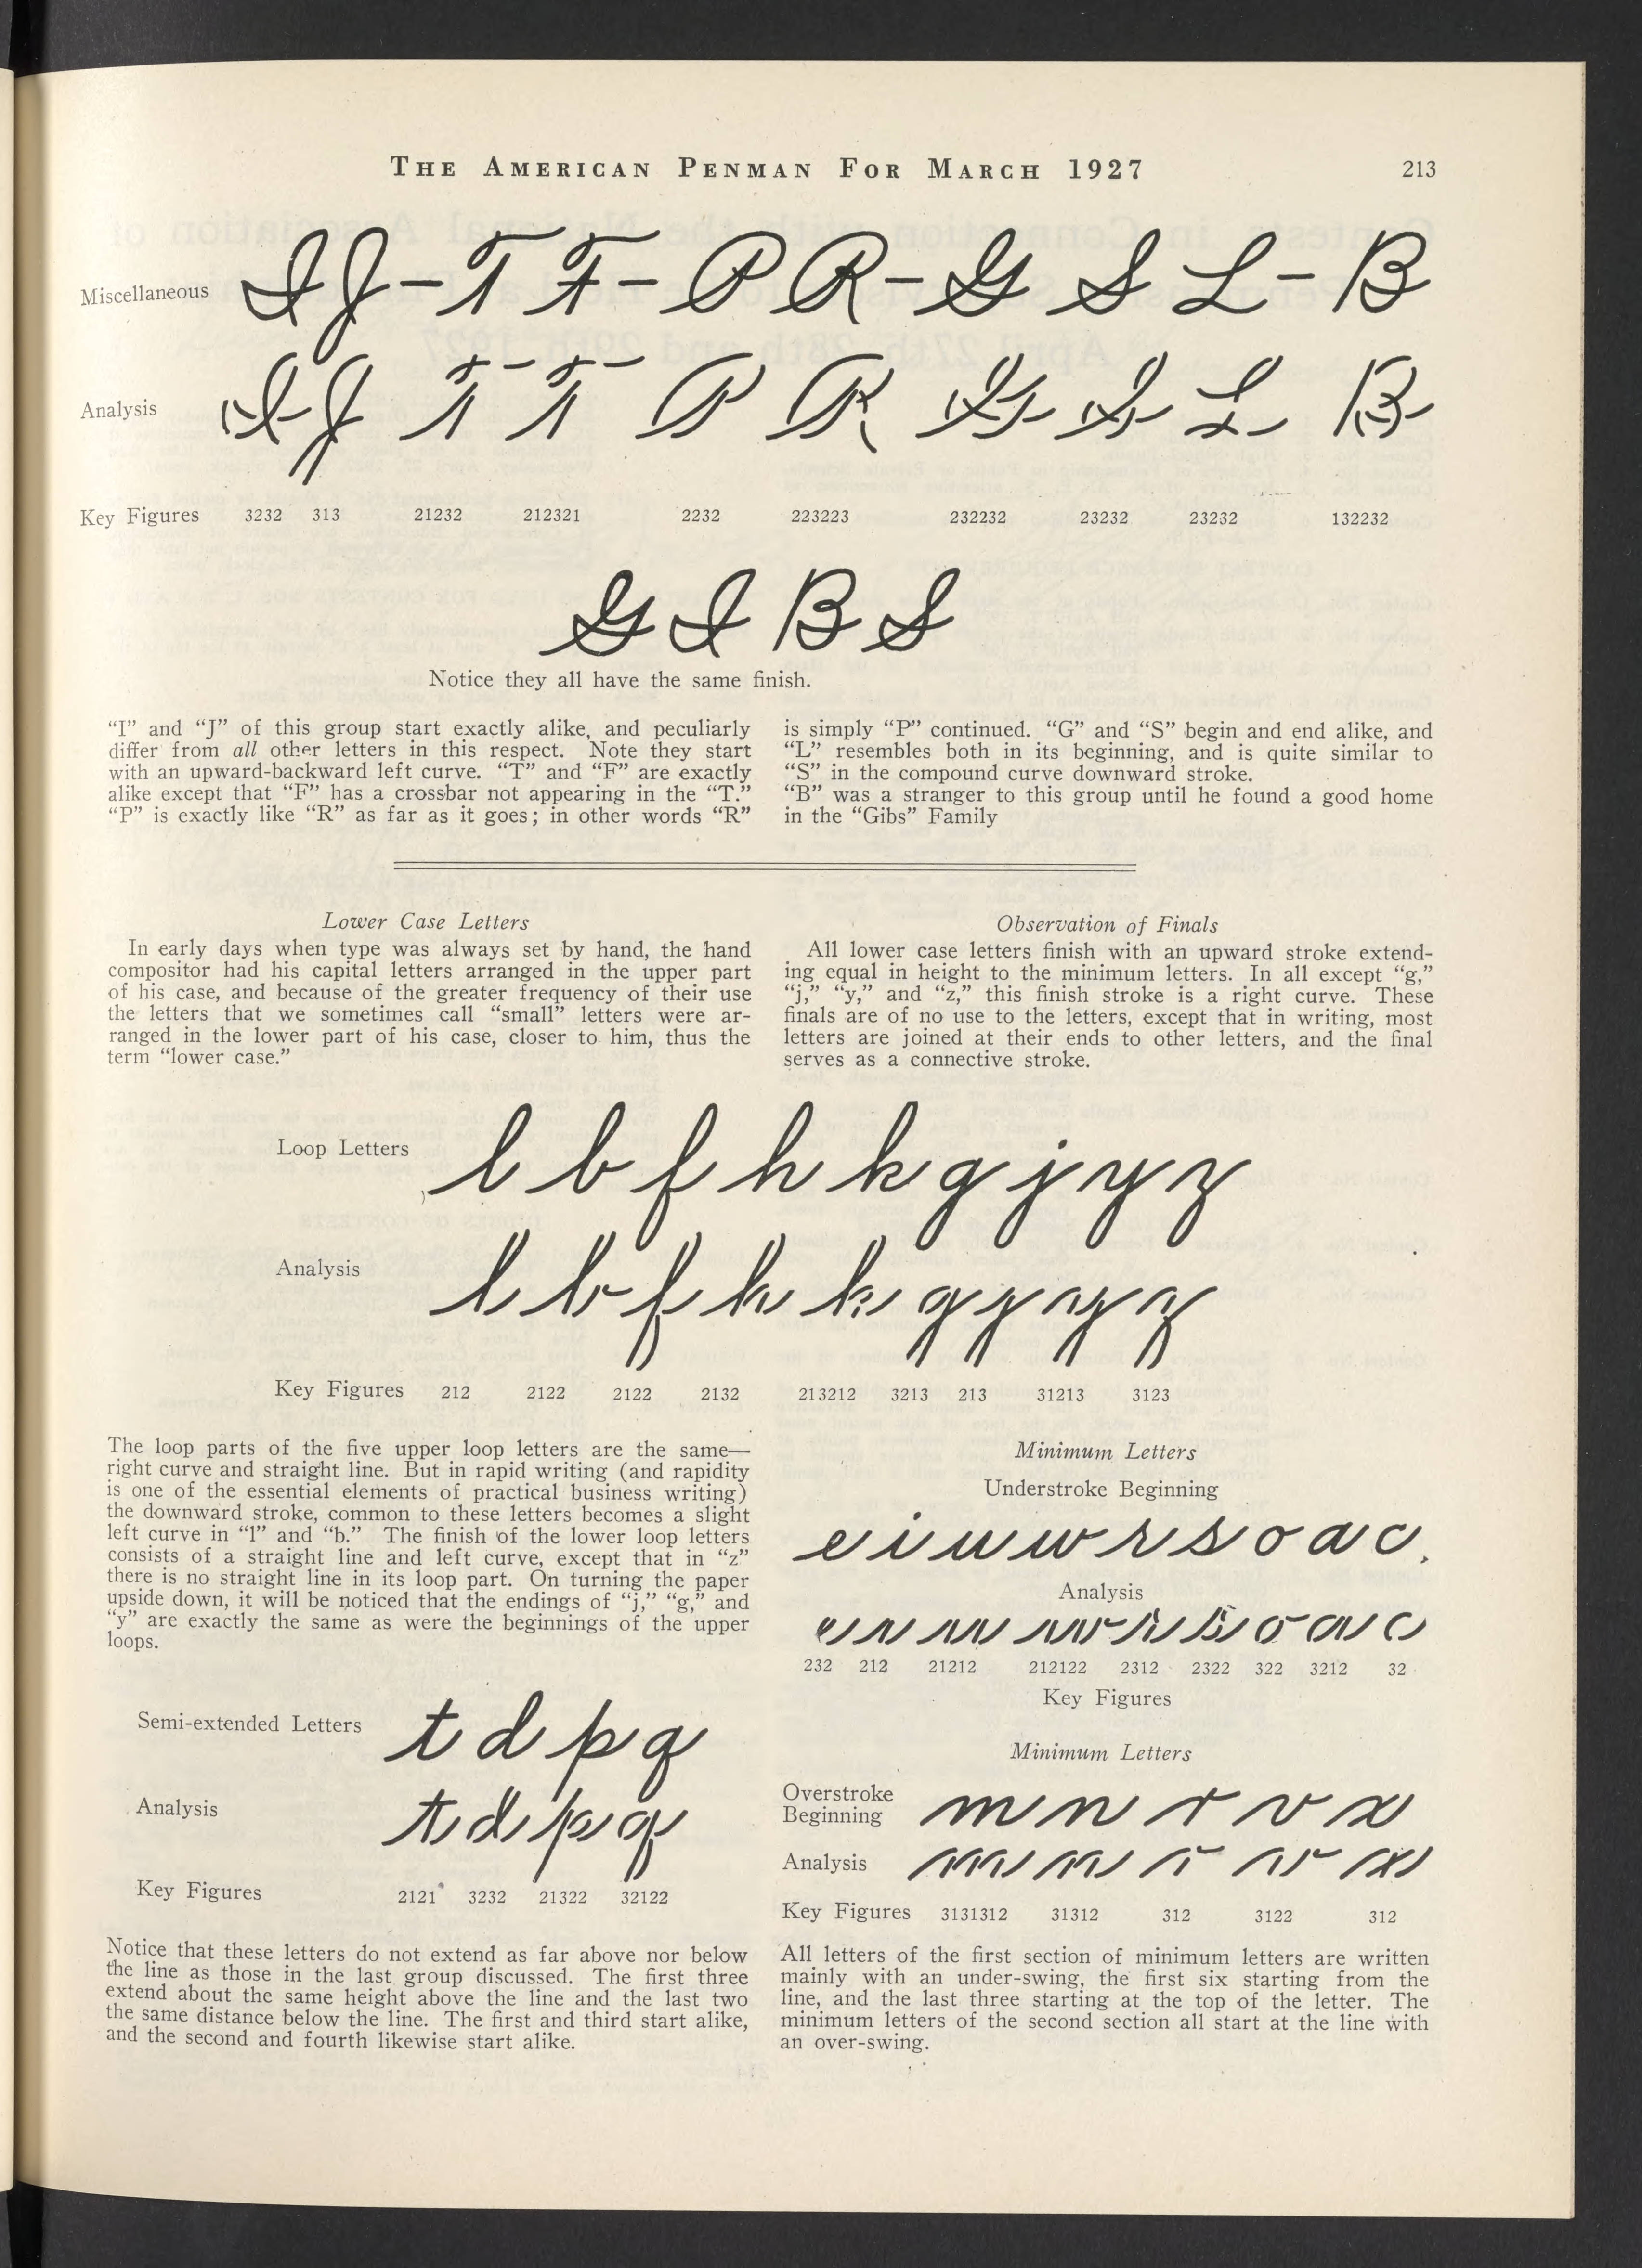 THE AMERICAN PENMAN FOR MARCH 1927 213
Miscellaneous I J – T F – P R – G S L – B
Analysis I J T T P R G S L B
Key Figures 3232 313 21232 212321 2232 223223 232232 23232 23232 132232
G I B S
Notice they all have the same finish.
“I” and “J” of this group start exactly alike, and peculiarly
differ from all other letters in this respect. Note they start
with an upward-backward left curve. “T” and “F” are exactly
alike except that “F” has a crossbar not appearing in the “T.”
“P” is exactly like “R” as far as it goes; in other words “R”
is simply “P” continued. “G” and “S” begin and end alike, and
“L” resembles both in its beginning, and is quite similar to
“S” in the compound curve downward stroke.
“B” was a stranger to this group until he found a good home
in the “Gibs” Family
Lower Case Letters
In early days when type was always set by hand, the hand
compositor had his capital letters arranged in the upper part
of his case, and because of the greater frequency of their use
the letters that we sometimes call “small” letters were ar-
ranged in the lower part of his case, closer to him, thus the
term “lower case.”
Observation of Finals
All lower case letters finish with an upward stroke extend-
ing equal in height to the minimum letters. In all except “g,”
“j,” “y,” and “z,” this finish stroke is a right curve. These
finals are of no use to the letters, except that in writing, most
letters are joined at their ends to other letters, and the final
serves as a connective stroke.
Loop Letters l b f h k g j y z
Analysis l b f h k g j y z
Key Figures 212 2122 2122 2132 213212 3213 213 31213 3123
The loop parts of the five upper loop letters are the same—
right curve and straight line. But in rapid writing (and rapidity
is one of the essential elements of practical business writing)
the downward stroke, common to these letters becomes a slight
left curve in “l” and “b.” The finish of the lower loop letters
consists of a straight line and left curve, except that in “z”
there is no straight line in its loop part. On turning the paper
upside down, it will be noticed that the endings of “j,” “g,” and
“y” are exactly the same as were the beginnings of the upper
loops.
Semi-extended Letters t d p q
Analysis t d p q
Key Figures 2121 3232 21322 32122
Notice that these letters do not extend as far above nor below
the line as those in the last group discussed. The first three
extend about the same height above the line and the last two
the same distance below the line. The first and third start alike,
and the second and fourth likewise start alike.
Minimum Letters
Understroke Beginning
e i u w r s o a c
Analysis
e i u w r s o a c
232 212 21212 212122 2312 2322 322 3212 32
Key Figures
Minimum Letters
Overstroke
Beginning m n r v x
Analysis m n r v x
Key Figures 3131312 31312 312 3122 312
All letters of the first section of minimum letters are written
mainly with an under-swing, the first six starting from the
line, and the last three starting at the top of the letter. The
minimum letters of the second section all start at the line with
an over-swing.